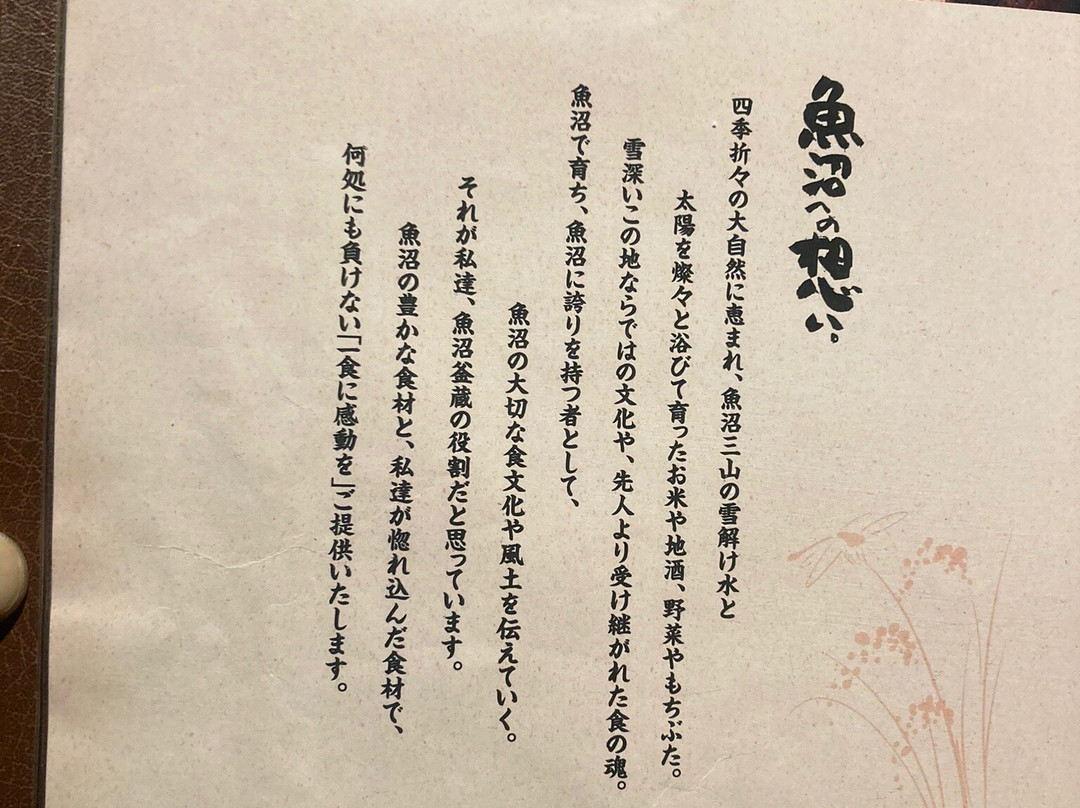 魚沼への想い。
四季折々の大自然に恵まれ、魚沼三山の雪解け水と
太陽を燦々と浴びて育ったお米や地酒、野菜やもちぶた。
雪深いこの地ならではの文化や、先人より受け継がれた食の魂。
魚沼で育ち、魚沼に誇りを持つ者として、
魚沼の大切な食文化や風土を伝えていく。
それが私達、魚沼釜蔵の役割だと思っています。
魚沼の豊かな食材と、私達が惚れ込んだ食材で、
何処にも負けない「一食に感動を」ご提供いたします。